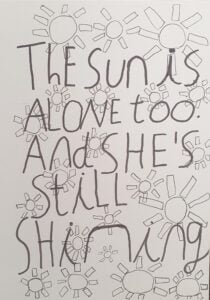 The SUN is
ALONE too.
And SHE'S
Still
SHining